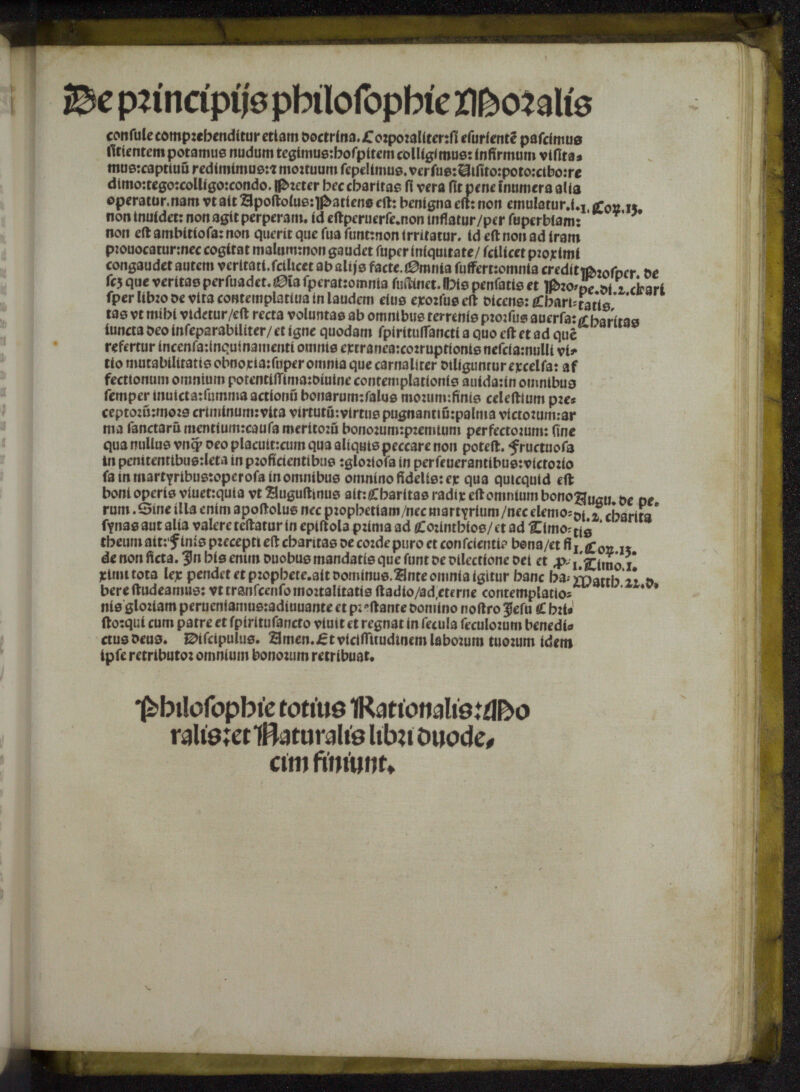 De principijs philosophie Moralis
consule comprehenditur etiam doctrina. Corporaliter: si esurientē pascimus
sitientem potamus nudum tegimus: hospitem colligimus: infirmum visita⸗
mus: captiuū redimimus: ⁊ mortuum sepelimus. versus: Visito: poto: cibo: re
dimo: tego: colligo: condo. Preter hec charitas si vera sit pene īnumera alia
operatur. nam vt ait Apostolus: Patiens est: benigna est: non emulatur. i.
1. Cor. 13.
non inuidet: non agit perperam. id est peruerse. non inflatur/per superbiam:
non est ambitiosa: non querit que sua sunt: non irritatur. id est non ad iram
prouocatur: nec cogitat malum: non gaudet super iniquitate/ scilicet proximi
congaudet autem veritati. scilicet ab alijs facte. Omnia suffert: omnia credit
Prosper. de
scȝ que veritas persuadet. Oīa sperat: omnia sustinet. His pensatis et Pro⸗
pe. di. 2. chari
sper libro de vita contemplatiua in laudem eius exorsus est dicens: Chari⸗
tatis.
tas vt mihi videtur/est recta voluntas ab omnibus terrenis prorsus auersa:
Charitas
iuncta deo inseparabiliter/ et igne quodam spiritussancti a quo est et ad quē
refertur incensa: inquinamenti omnis extranea: corruptionis nescia: nulli vi⸗
tio mutabilitatis obnoxia: super omnia que carnaliter diliguntur excelsa: af
fectionum omnium potentissima: diuine contemplationis auida: in omnibus
semper inuicta: summa actionū bonarum: salus morum: finis celestium pre⸗
ceptorū: mors criminum: vita virtutū: virtus pugnantiū: palma victorum: ar
ma sanctarū mentium: causa meritorū bonorum: premium perfectorum: sine
qua nullus vnqȝ deo placuit: cum qua aliquis peccare non potest. Fructuosa
in penitentibus: leta in proficientibus: gloriosa in perseuerantibus: victorio
sa in martyribus: operosa in omnibus omnino fidelis: ex qua quicquid est
boni operis viuet: quia vt Augustinus ait: Charitas radix est omnium bono
Augu. de pe.
rum. Sine illa enim apostolus nec prophetiam/nec martyrium/nec elemo⸗
di. 2. charita
synas aut alia valere testatur in epistola prima ad Corinthios/ et ad Timo⸗
tis
theum ait: Finis precepti est charitas de corde puro et conscientia bona/et fi
1. Cor. 13.
de non ficta. In his enim duobus mandatis que sunt de dilectione dei et ꝓ⸗
1. Timo. 1.
ximi tota lex pendet et prophete. ait dominus. Ante omnia igitur hanc ha⸗
Matth. 22. d.
bere studeamus: vt transcenso mortalitatis stadio/ad eterne contemplatio⸗
nis gloriam perueniamus: adiuuante et prestante domino nostro Jesu Chri⸗
sto: qui cum patre et spiritusancto viuit et regnat in secula seculorum benedi⸗
ctus deus. Discipulus. Amen. Et vicissitudinem laborum tuorum idem
ipse retributor omnium bonorum retribuat.
Philosophie totius Rationalis: Mo
ralis: et Naturalis libri duode⸗
cim finiunt.